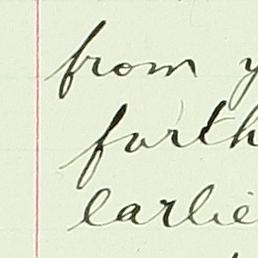 from y
furth
earlie